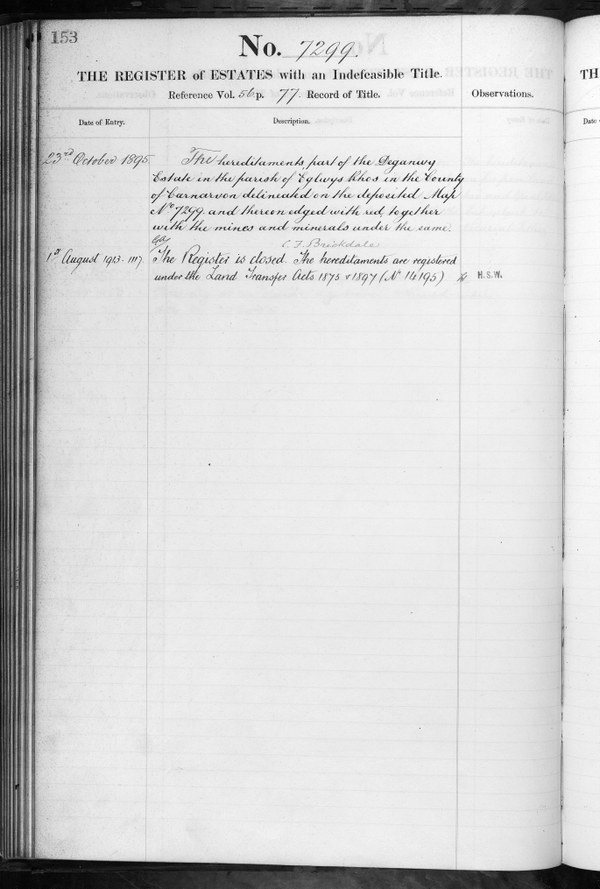 153
No. 7299.
THE REGISTER of ESTATES with an Indefeasible Title.
Reference Vol. 56 p. 77. Record of Title.
Observations.
Date of Entry.
Description.
23rd October 1895
The hereditaments part of the Deganwy
Estate in the parish of Eglwys Rhos in the County
of Carnarvon delineated on the deposited Map
No 7299 and thereon edged with red, together
with the mines and minerals under the same.
C. F. Brickdale
1st August 1913.
The Register is closed. The hereditaments are registered
under the Land Transfer Acts 1875 & 1897 (No 14195)
H.S.W.
TH
Date